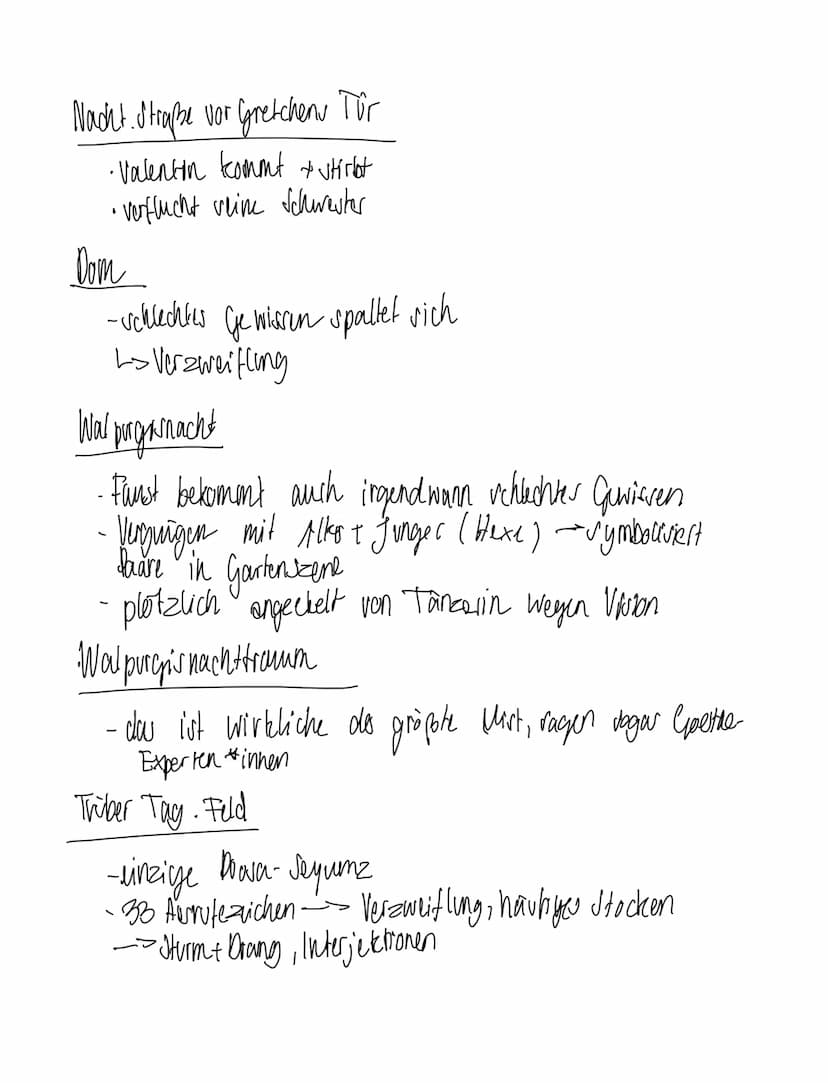 Nacht. Straße vor Gretchens Tür
· Valentin kommt + stirbt
· verflucht seine Schwester
Dom
- schlechtes Gewissen spaltet sich
↳ Verzweiflung
Walpurgisnacht
- Faust bekommt auch irgendwann schlechtes Gewissen
- Vergnügen mit Alko + Junger (Hexe) → symbolisiert
Paare in Gartenszene
- plötzlich angeekelt von Tänzerin wegen Vision
Walpurgisnachttraum
- das ist wirkliche der größte Mist, sagen sogar Goethe-
Experten*innen
Trüber Tag. Feld
- einzige Prosa-Sequenz
- 33 Ausrufezeichen → Verzweiflung, häufiges Stocken
→ Sturm + Drang, Interjektionen